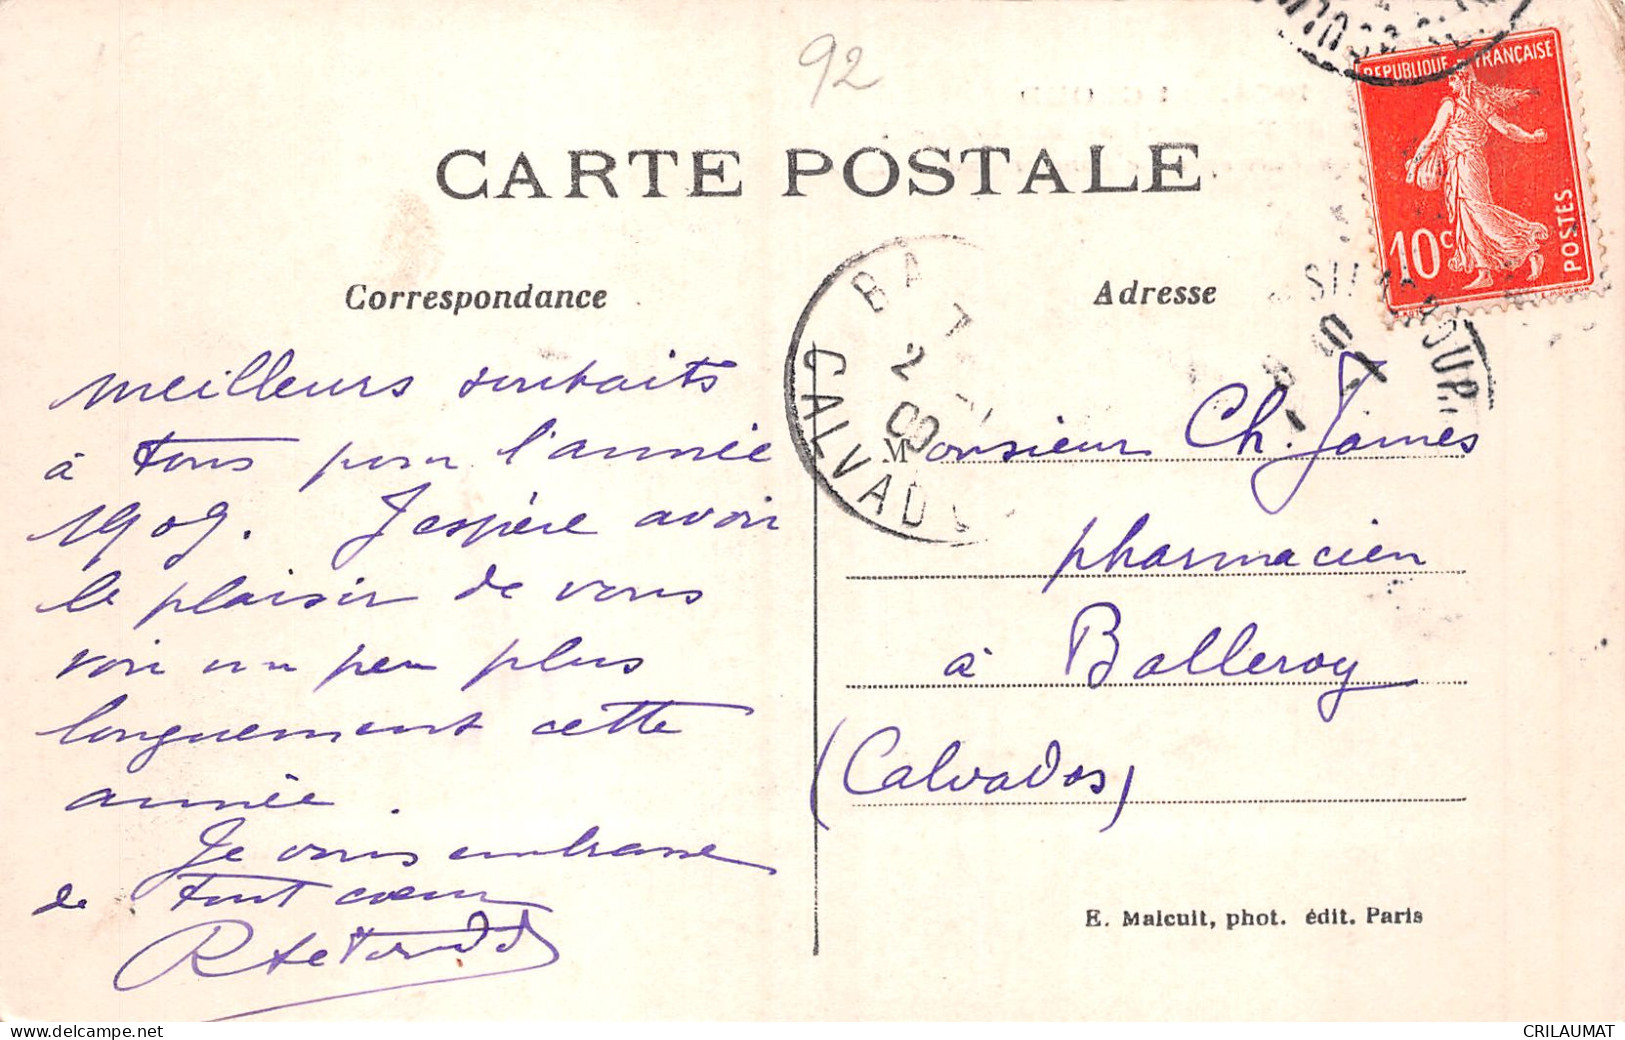 92
CARTE POSTALE
REPUBLIQUE FRANÇAISE
10c
POSTES
Correspondance
Adresse
CALVADOS
meilleurs souhaits
à tous pour l'année
1909. J'espère avoir
le plaisir de vous
voir un peu plus
longuement cette
année.
Je vous embrasse
de tout cœur
Monsieur Ch. James
pharmacien
à Balleroy
(Calvados)
E. Malcuit, phot. édit. Paris
www.delcampe.net
CRILAUMAT